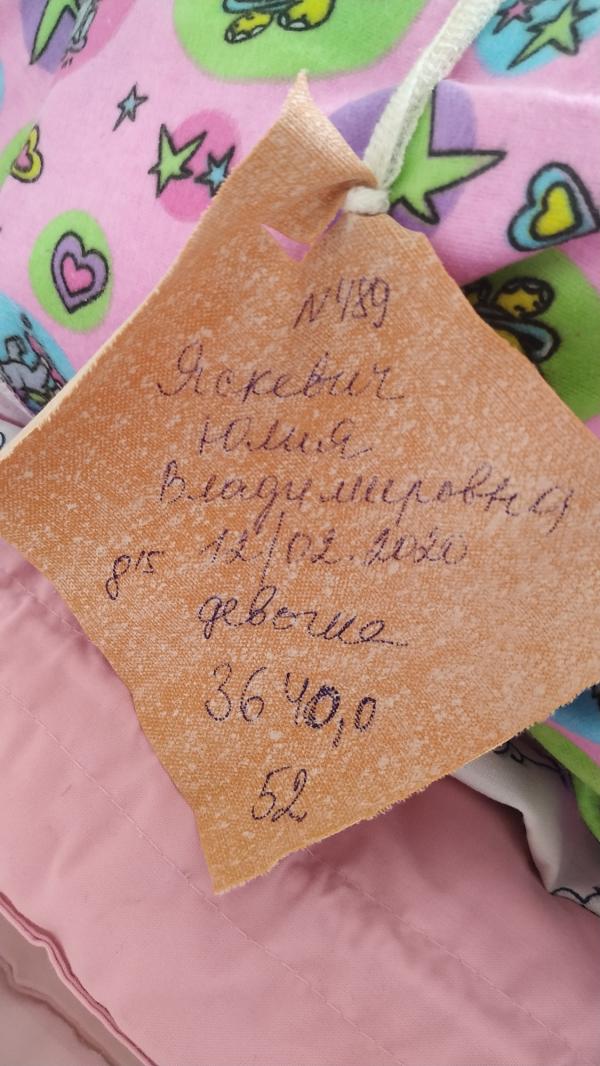 N489
Яскевич
Юлия
Владимировна
8 15 12/02.2020
девочка
3640,0
52